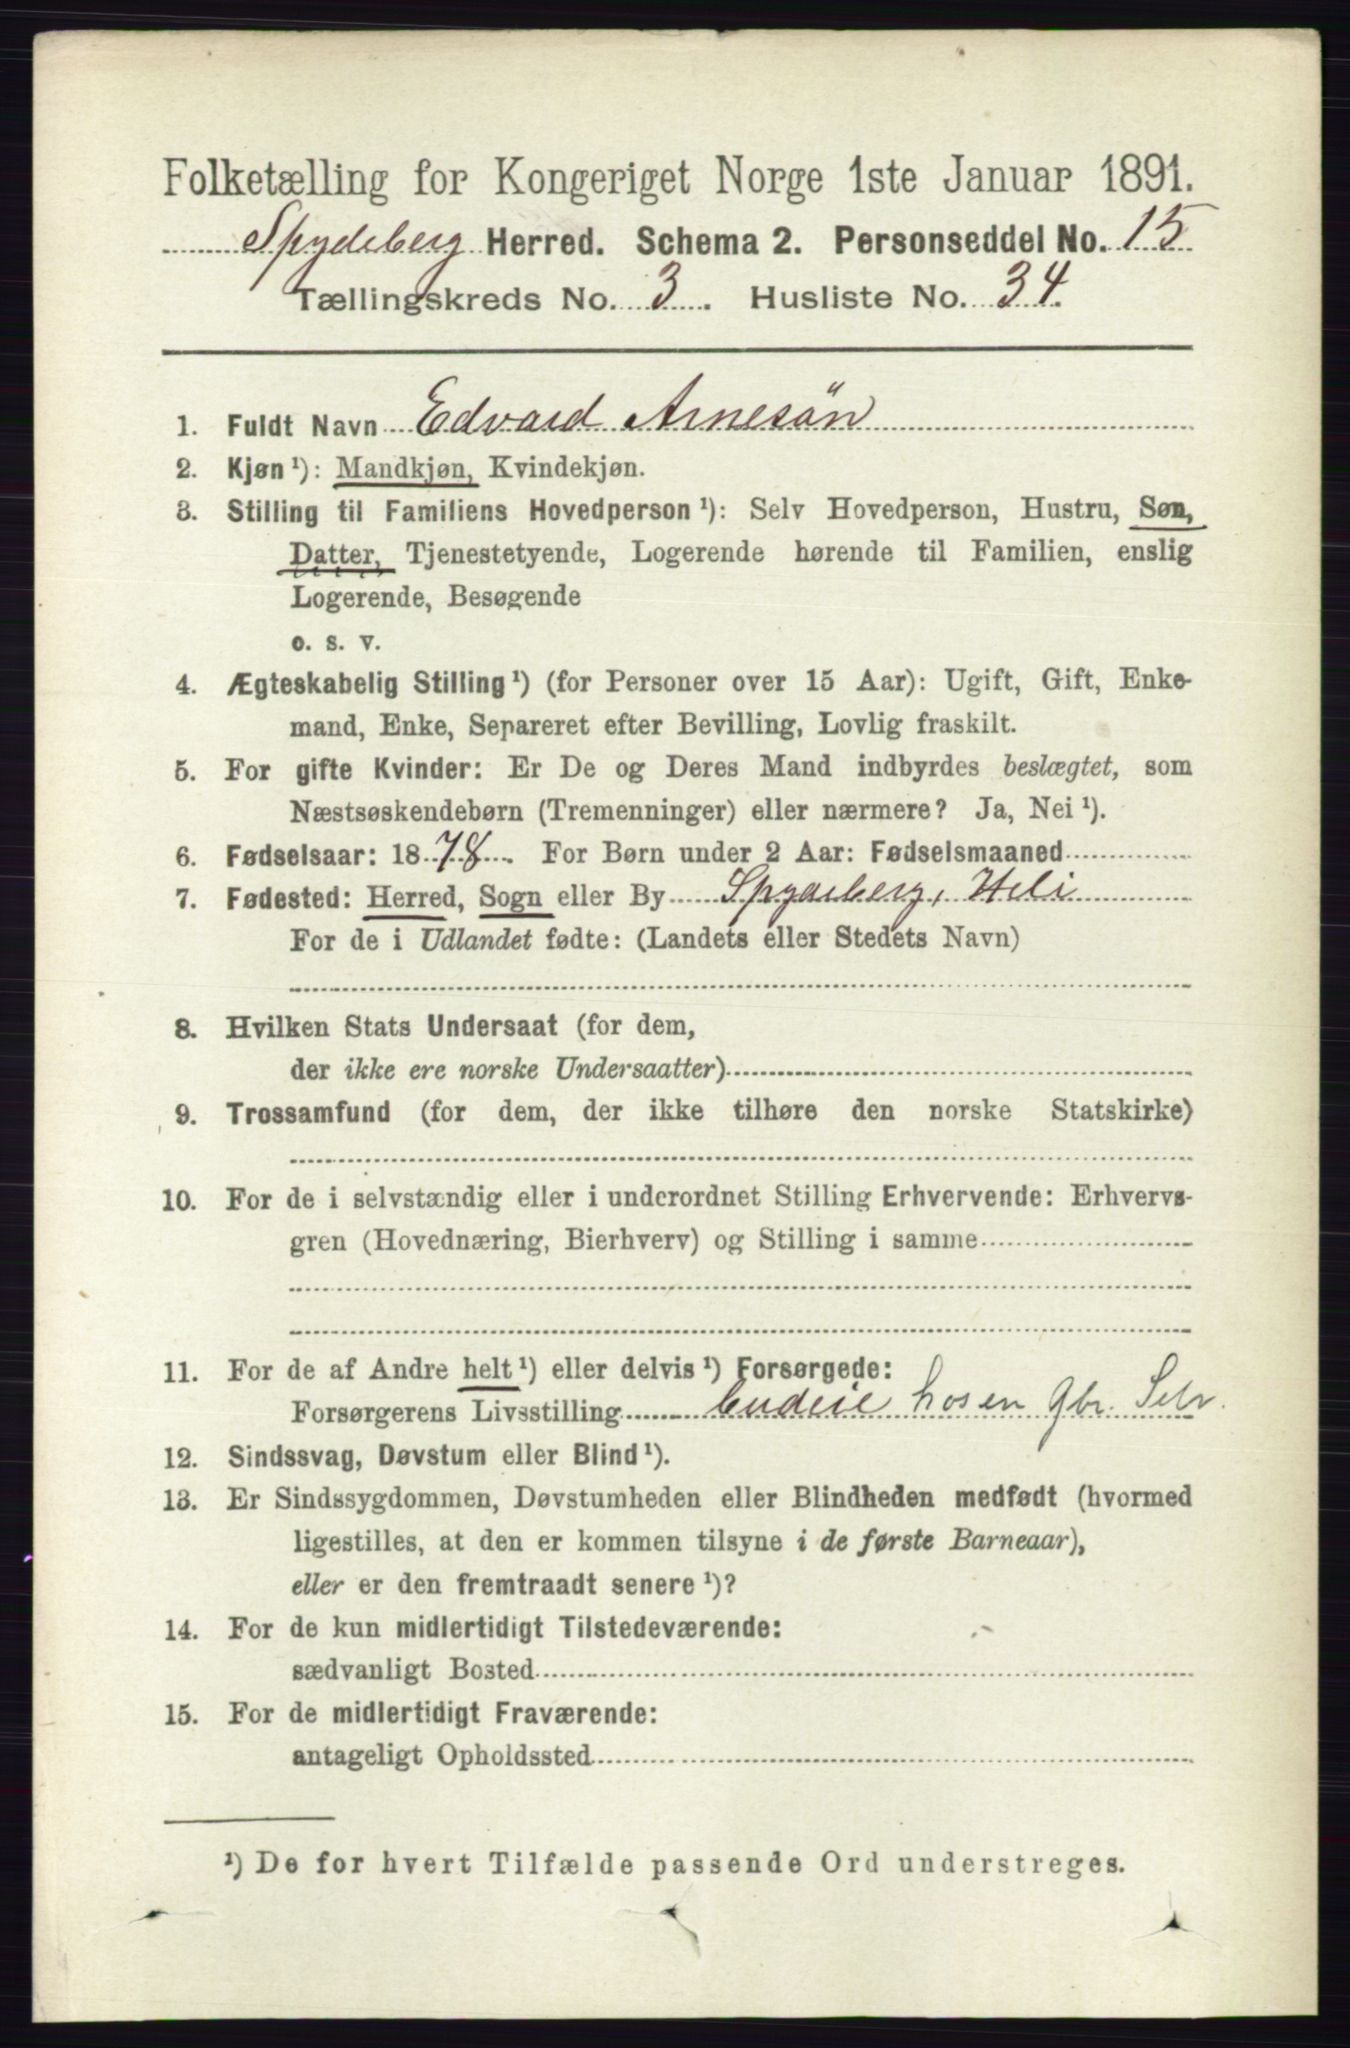 Folketælling for Kongeriget Norge 1ste Januar 1891.
Spydeberg Herred. Schema 2. Personseddel No. 15
Tællingskreds No. 3. Husliste No. 34.
1. Fuldt Navn Edvard Arnesön
2. Kjøn ¹): Mandkjøn, Kvindekjøn.
3. Stilling til Familiens Hovedperson ¹): Selv Hovedperson, Hustru, Søn,
Datter, Tjenestetyende, Logerende hørende til Familien, enslig
Logerende, Besøgende
o. s. v.
4. Ægteskabelig Stilling ¹) (for Personer over 15 Aar): Ugift, Gift, Enke-
mand, Enke, Separeret efter Bevilling, Lovlig fraskilt.
5. For gifte Kvinder: Er De og Deres Mand indbyrdes beslægtet, som
Næstsøskendebørn (Tremenninger) eller nærmere? Ja, Nei ¹).
6. Fødselsaar: 1878. For Børn under 2 Aar: Fødselsmaaned
7. Fødested: Herred, Sogn eller By Spydeberg, Heli
For de i Udlandet fødte: (Landets eller Stedets Navn)
8. Hvilken Stats Undersaat (for dem,
der ikke ere norske Undersaatter)
9. Trossamfund (for dem, der ikke tilhøre den norske Statskirke)
10. For de i selvstændig eller i underordnet Stilling Erhvervende: Erhvervs-
gren (Hovednæring, Bierhverv) og Stilling i samme
11. For de af Andre helt ¹) eller delvis ¹) Forsørgede:
Forsørgerens Livsstilling hos en Gbr. Selv.
12. Sindssvag, Døvstum eller Blind ¹).
13. Er Sindssygdommen, Døvstumheden eller Blindheden medfødt (hvormed
ligestilles, at den er kommen tilsyne i de første Barneaar),
eller er den fremtraadt senere ¹)?
14. For de kun midlertidigt Tilstedeværende:
sædvanligt Bosted
15. For de midlertidigt Fraværende:
antageligt Opholdssted
¹) De for hvert Tilfælde passende Ord understreges.